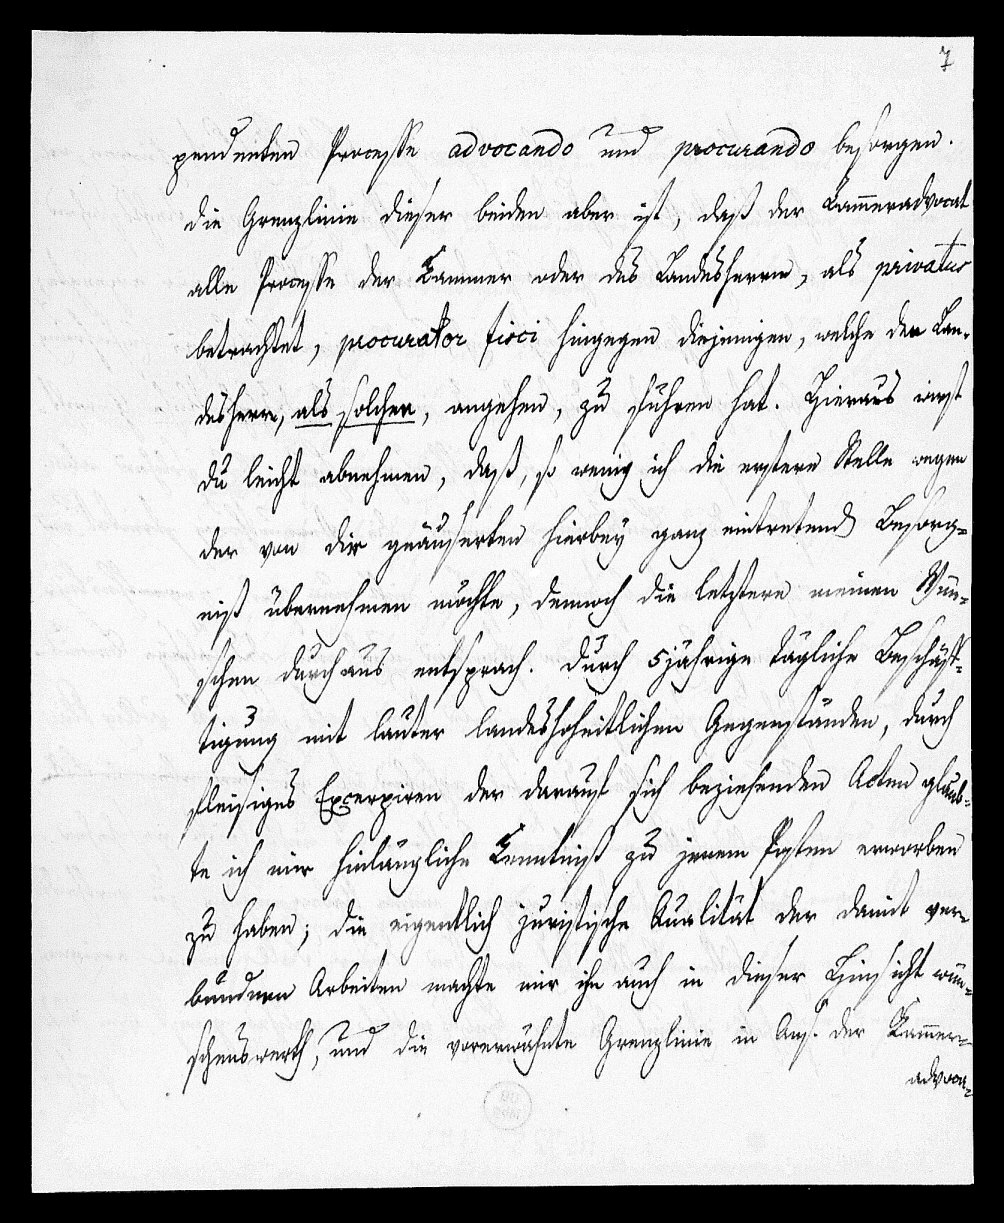 7
pendenten Processe advocando und procurando besorgen.
die Grenzlinie dieser beiden aber ist, daß der Kam̅eradvocat
alle Processe der Kammer oder des Landesherrn, als privatus
betrachtet, procurator fisci hingegen diejenigen, welche den Lan-
desherrn, als solchen, angehen, zu führen hat. Hieraus wirst
du leicht abnehmen, daß, so wenig ich die erstere Stelle wegen
der von dir geäußerten hierbey ganz eintretend Besorg-
niß übernehmen möchte, dennoch die letztere meinen Wün-
schen durchaus entsprach. Durch 5jährige tägliche Beschäf-
tigung mit lauter landeshoheitlichen Gegenständen, durch
fleisiges Excerpiren der darauf sich beziehenden Acten glaub-
te ich mir hinlängliche Kenntniß zu jenem Posten erworben
zu haben; die eigentlich juristische Qualität der damit ver-
bundnen Arbeiten machte mir ihn auch in dieser Hinsicht wün-
schenswerth, und die vorerwähnte Grenzlinie in Ans. der Kam̅er-
advoca-